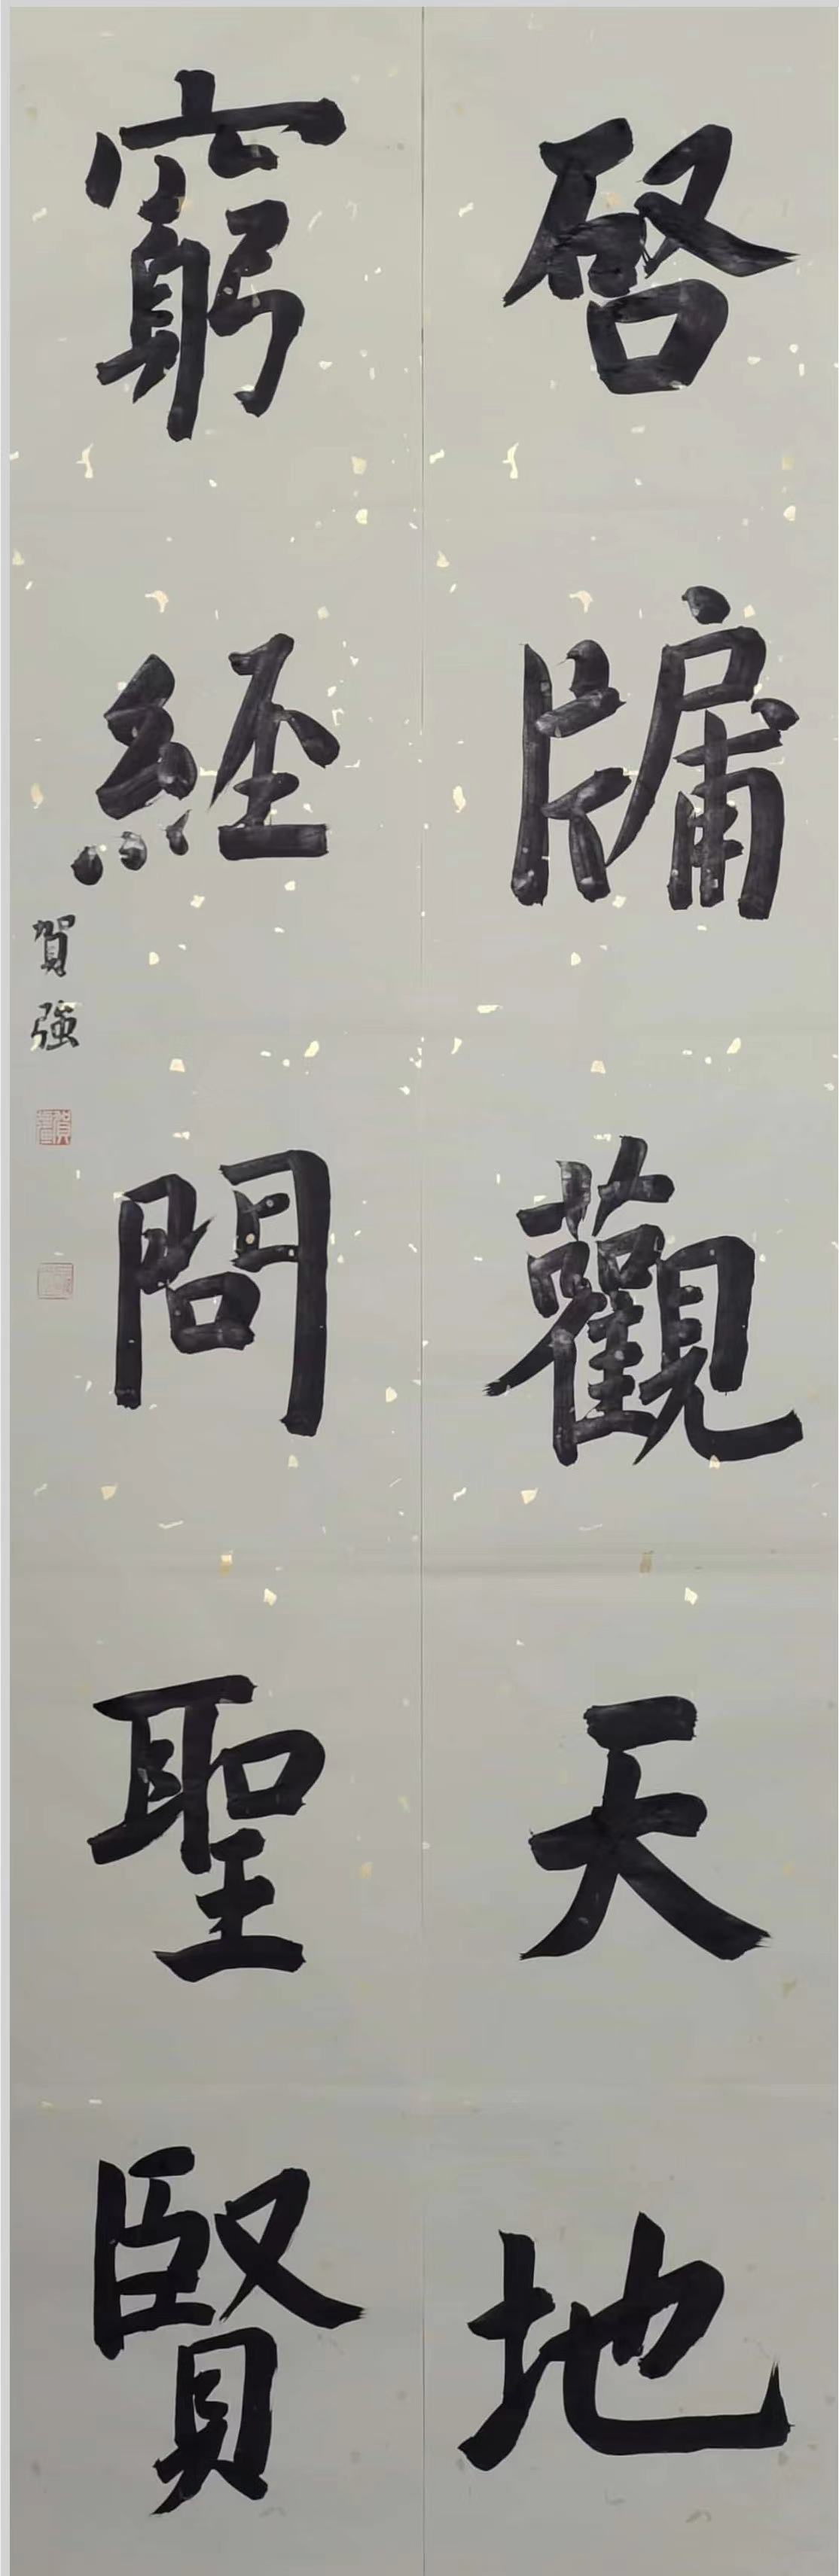 啓牖觀天地
窮經問聖賢
賀強